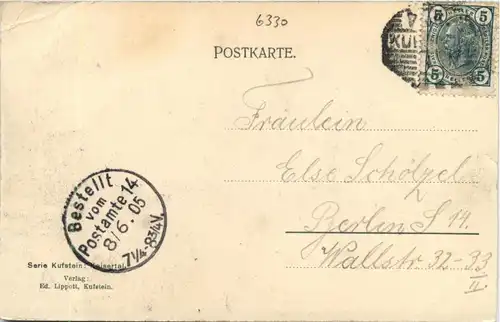 6330
POSTKARTE.
5 5
5 5
KUF
Fräulein
Else Schölzel
Berlin S 14.
Wallstr 32-33
II
Bestellt
vom
Postamte 14
8/6. 05
7¼-8¾V.
Serie Kufstein: Kaisertal
Verlag:
Ed. Lippott, Kufstein.